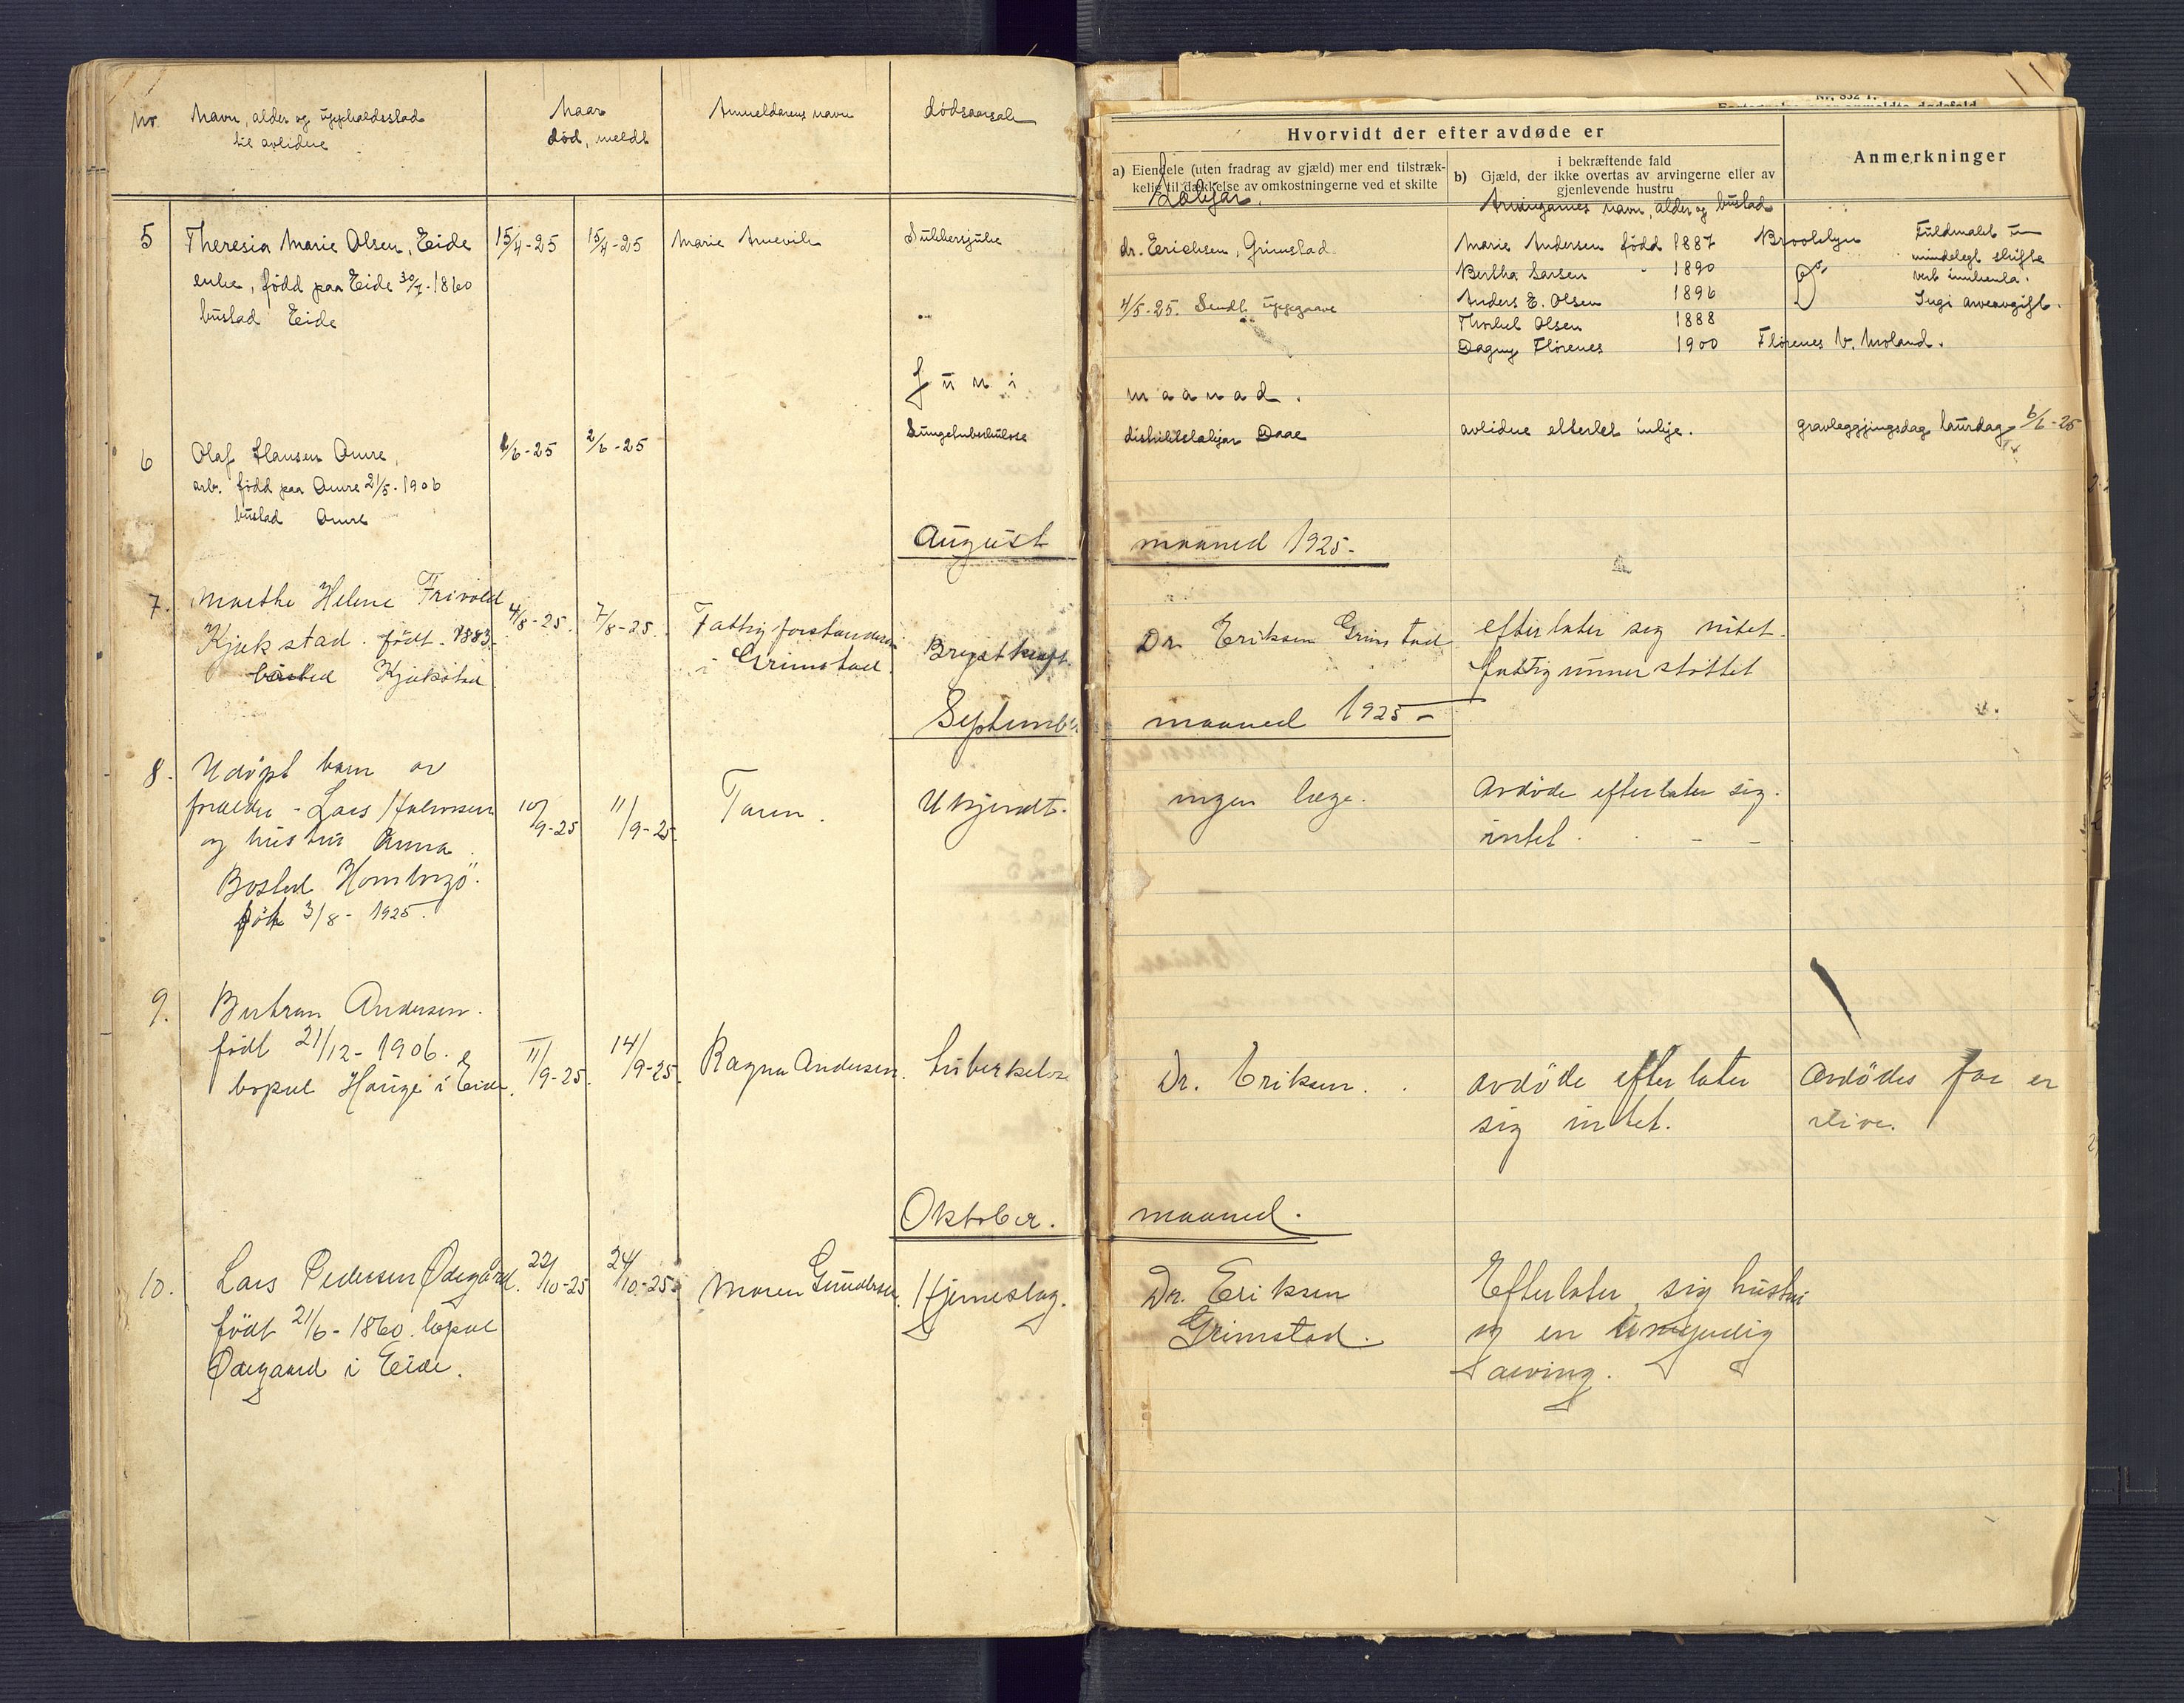 Nr.
Navn, alder og upphaldsstad
til avlidne
Naar
død, meldt
Anmeldarens navn
dødsaarsak
Nr. 852
Hvorvidt der efter avdøde er
a) Eiendele (uten fradrag av gjæld) mer end tilstræk-
kelig til dækkelse av omkostningerne ved et skifte
i bekræftende fald
b) Gjæld, der ikke overtas av arvingerne eller av
gjenlevende hustru
Anmerkninger
Lækjar.
Arvingarnes navn, alder og bustad
5
Theresia Marie Olsen, Eide
enke, fødd paa Eide 30/7-1860
bustad Eide
15/4-25
15/4-25
Marie
Sukkersjuke
dr. Erichsen, Grimstad
4/5-25. Sendt uppgaave
Marie Andersen fødd 1887 Brooklyn
Bertha Larsen " 1890 do
Anders E. Olsen 1896
Thorkel Olsen 1888
Dagny Flørenes 1900 Flørenes V. Moland.
Fuldmakt um
mindelegt skifte
vert innhenta.
Ingi arveavgift.
Juni
maanad.
6
Olaf Hansen Omre,
arb. fødd paa Omre 21/5-1906
bustad Omre
2/6-25
2/6-25
Lungetuberkulose
distriktslækjar Daae
avlidne etterlet inkje.
gravleggjingsdag laurdag 6/6-25
August
maaned 1925-
7.
Marthe Helene Frivold
Kjekstad. født. 1883-
bosted Kjekstad
4/8-25.
7/8-25.
Fattigforstanderen
i Grimstad
Brystkræft.
Dr. Eriksen Grimstad
efterlater sig intet.
fattigunnerstøttet
September
maaned 1925-
8.
Udöpt barn av
foreldre - Lars Halvorsen
og hustru Anna.
Bosted Homborgö.
föt 3/8-1925.
10/9-25
11/9-25.
Faren.
Ukjendt.
ingen læge.
Avdöde efterlater sig.
intet. - -
9.
Bertran Andersen.
födt 21/12-1906.
bopæl Hauge i Eide.
11/9-25.
14/9-25.
Ragna Andersen.
tuberkelose
Dr. Eriksen.
avdöde efterlater
sig intet.
Avdödes far er
ilive.
Oktober.
maaned.
10.
Lars Pedersen Ødegård.
født 21/6-1860. bopæl
Ødegaard i Eide.
22/10-25
24/10-25.
Maren Gundersen.
Hjerneslag.
Dr. Eriksen
Grimstad.
Efterlater sig hustru
og en umyndig
arving.